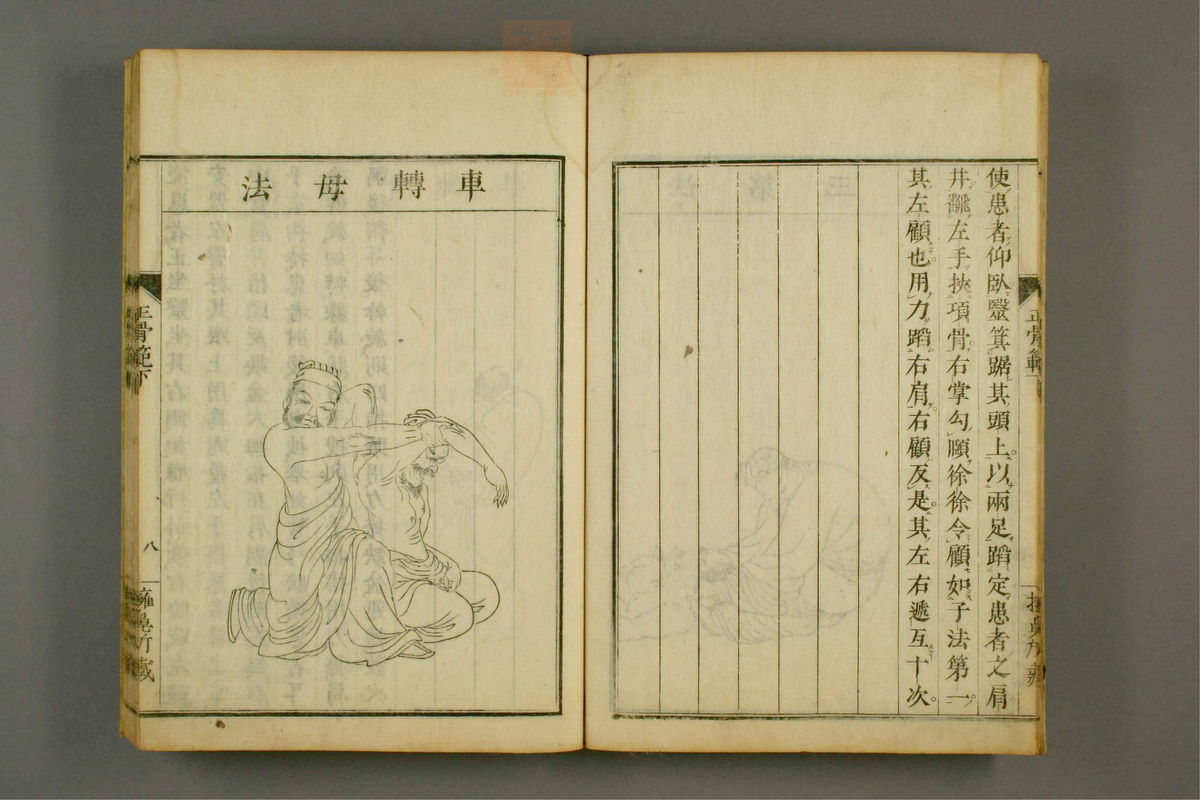 使患者仰臥毉箕踞其頭上。以兩足蹈定患者之肩
井髃左手挾項骨。右掌勾頤徐徐令顧。如子法第一。
其左顧也。用力蹈右肩。右顧反是。其左右遞互十次。
正骨範下
車轉母法
正骨範下
八